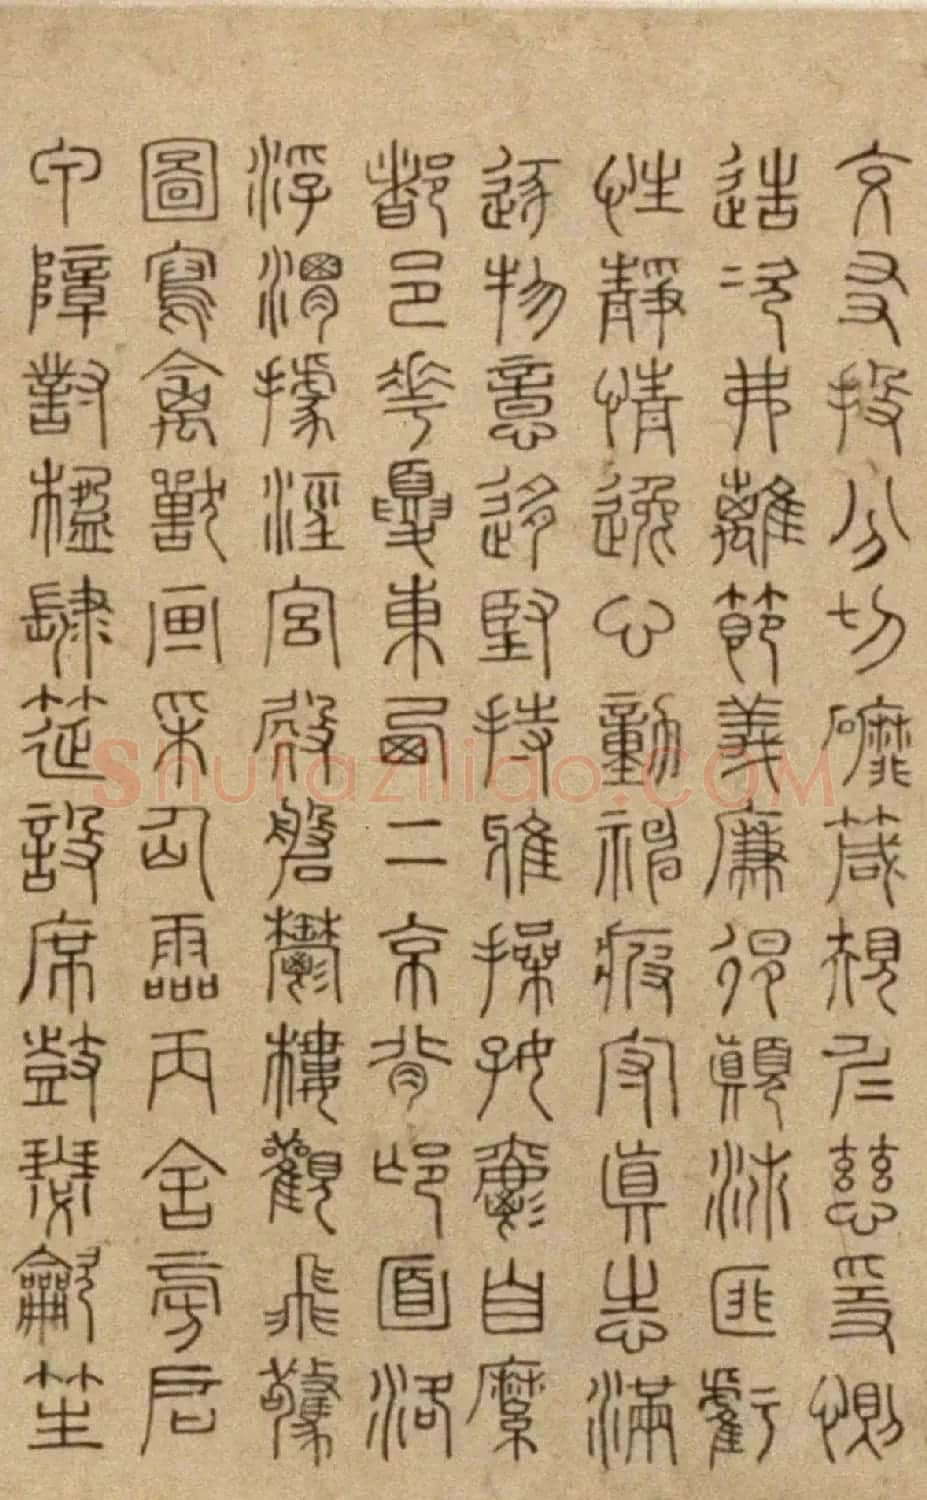 交友投分切磨箴規仁慈隱惻
造次弗離節義廉退顛沛匪虧
性靜情逸心動神疲守真志滿
逐物意移堅持雅操好爵自縻
都邑華夏東西二京背邙面洛
浮渭據涇宮殿盤鬱樓觀飛驚
圖寫禽獸画采仙靈丙舍傍啟
甲障對楹肆筵設席鼓瑟吹笙
Shufaziliao.COM